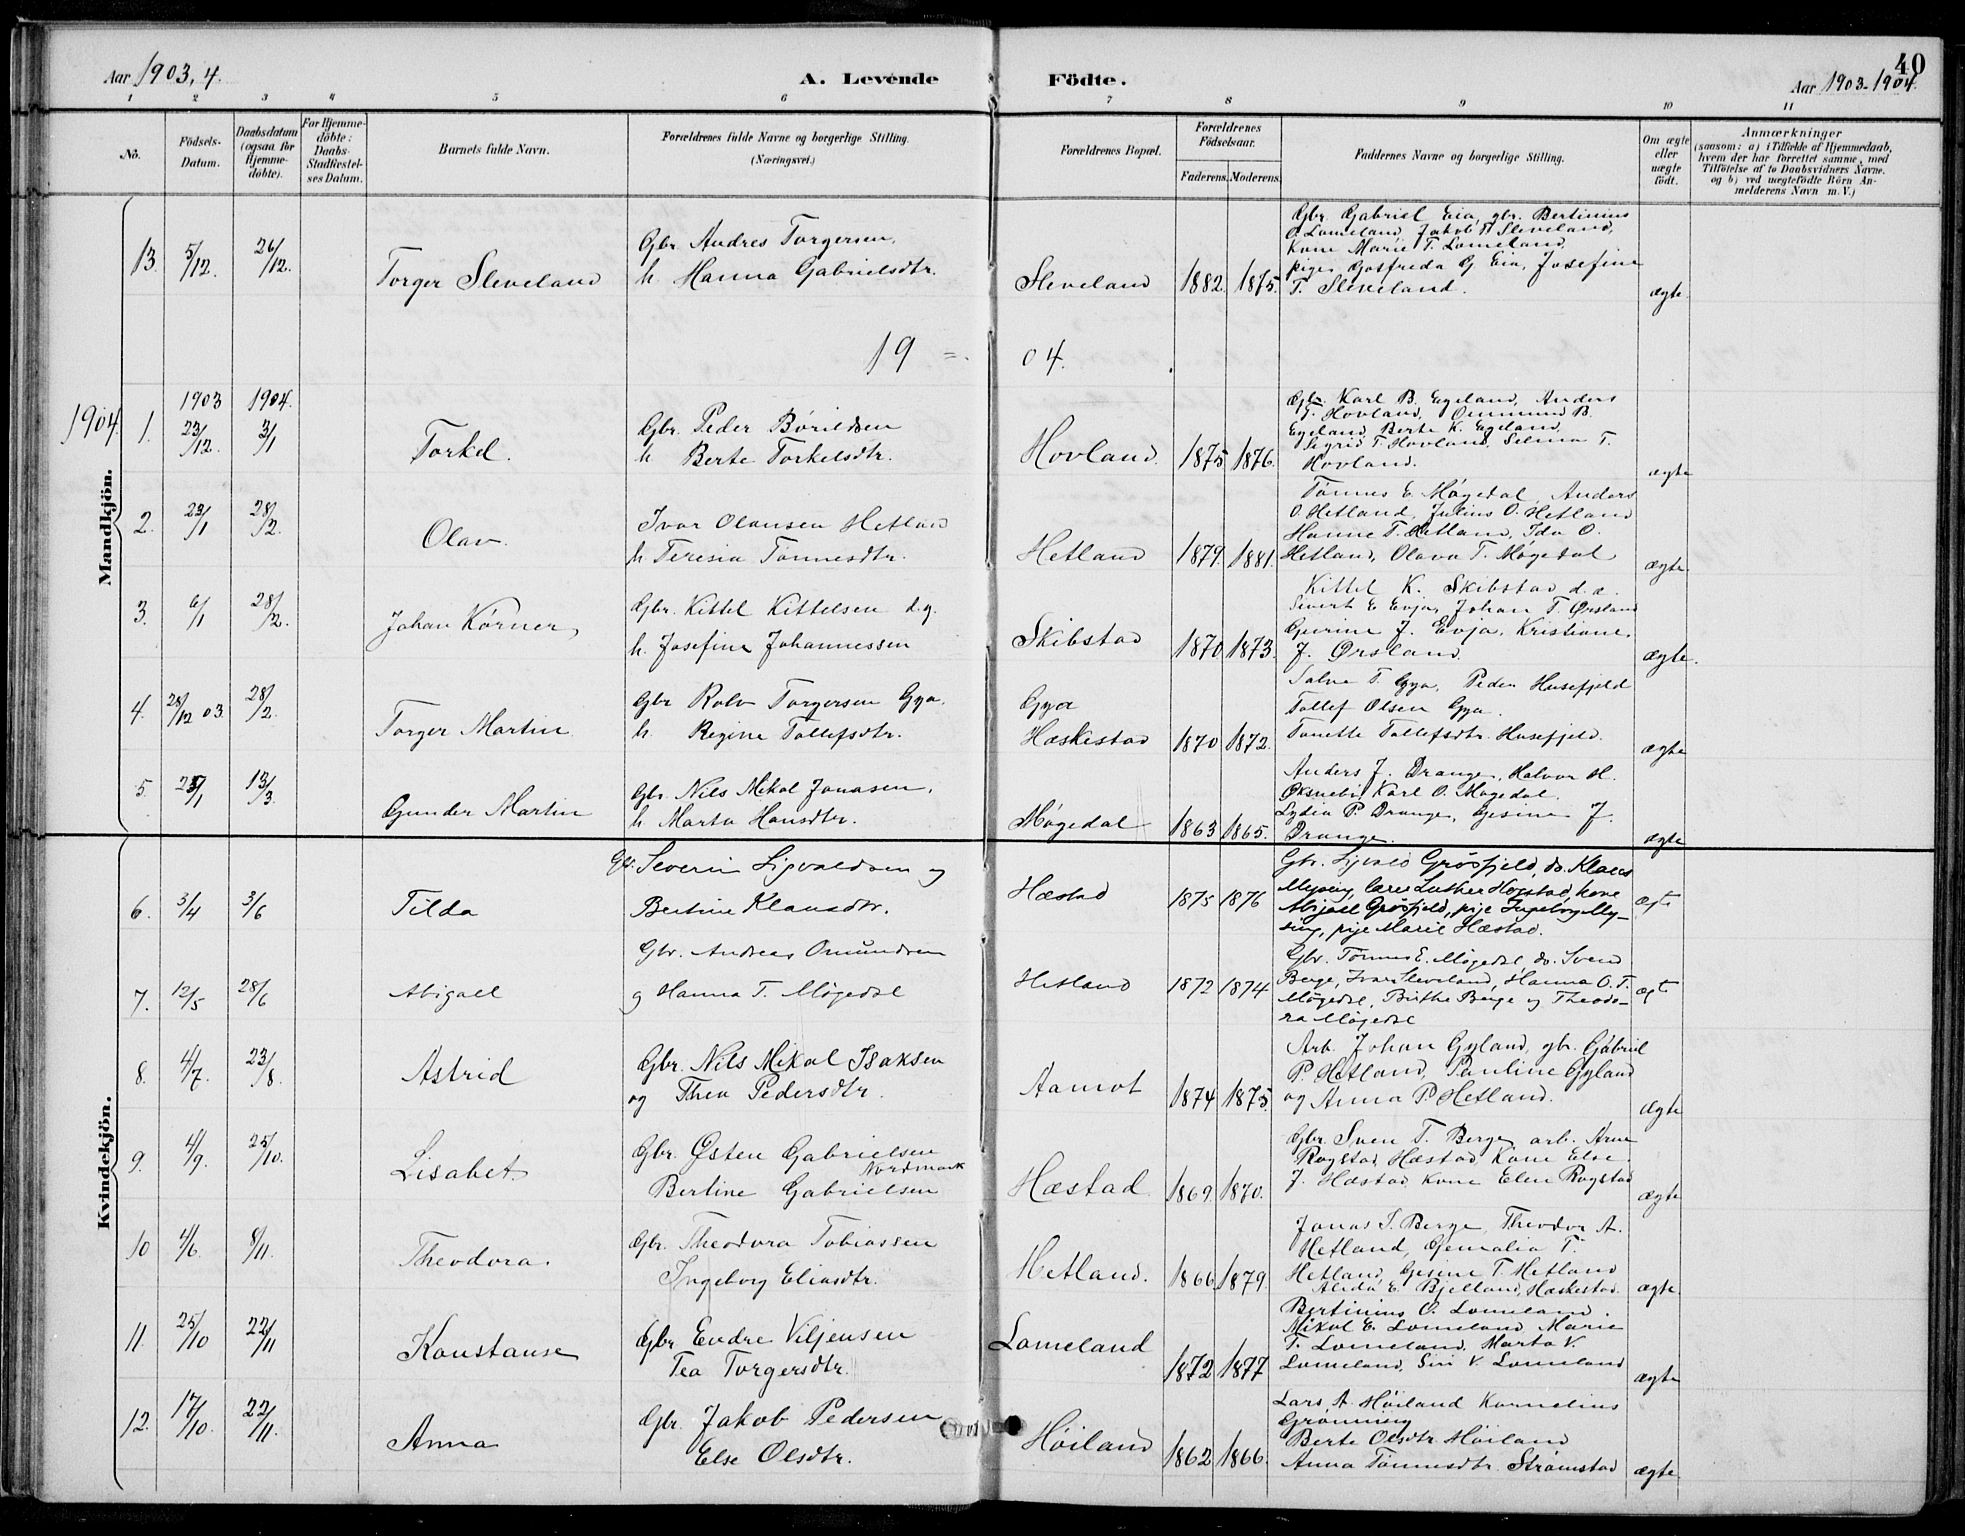 40
Aar 1903, 4.
A. Levende Födte.
Aar 1903-1904.
1 2 3 4 5 6 7 8 9 10 11
No.
Födsels-Datum.
Daabsdatum (ogsaa for Hjemme-döbte).
For Hjemme-döbte: Daabs-Stadfæstel-ses Datum.
Barnets fulde Navn.
Forældrenes fulde Navne og borgerlige Stilling. (Næringsvei.)
Forældrenes Bopæl.
Forældrenes Födselsaar.
Faderens. Moderens.
Faddernes Navne og borgerlige Stilling.
Om ægte eller uægte födt.
Anmærkninger
(saasom: a) i Tilfælde af Hjemmedaab,
hvem der har forrettet samme, med
Tilföielse af to Daabsvidners Navne.
og b) ved uægtefödte Börn An-
melderens Navn m. V.)
13. 5/12. 26/12. Torger Sleveland
Gbr. Andres Torgersen,
h. Hanna Gabrielsdtr.
Sleveland 1882. 1875.
Gbr. Gabriel Eia, gbr. Bertinius
O. Lomeland, Jakob T. Sleveland,
Kone Marie T. Lomeland,
piger Gotfreda G. Eia, Josefine
T. Sleveland.
ægte
19 = 04.
1904.
Mandkjön.
1. 1903 23/12. 1904. 3/1 Torkel.
Gbr. Peder Bórildsen
h Berte Torkelsdtr.
Hovland. 1875 1876.
Gbr. Karl B. Egeland, Anders
T. Hovland, Ommund B.
Egeland, Berte K. Egeland,
Sigrid T. Hovland, Selma T.
Hovland.
ægte
2. 23/1 28/2. Olav.
Ivar Olausen Hetland
h. Teresia Tønnesdtr.
Hetland 1879. 1881.
Tønnes E. Møgedal, Anders
O. Hetland, Julius O. Hetland
Hanne T. Hetland, Ida O.
Hetland, Olava T. Møgedal
ægte
3. 6/1 28/2. Johan Kørner,
Gbr. Kittel Kittelsen d.y.
h. Josefine Johannessen
Skibstad 1870 1873.
Kittel K. Skibstad d.æ.
Sivert E. Evja, Johan T. Ørsland
Gurine J. Evja, Kristiane
J. Ørsland.
ægte.
4. 28/12 03. 28/2. Torger Martin
Gbr Rolv Torgersen Gya.
h. Regine Tollefsdtr.
Gya
Hæskestad 1870 1872.
Salve T. Gya, Peder Husefjeld
Tollef Olsen Gya.
Tonette Tollefsdtr. Husefjeld.
ægte
5. 13/3. Gunder Martin
Gbr. Nils Mikal Jonasen,
h Marta Hansdtr.
Møgedal 1863 1865.
Anders J. Drange, Halvor H.
Øksnebi, Karl O. Møgedal.
Lydia P. Drange, Gesine J.
Drange.
ægte
Kvindekjön.
6. 3/4 3/6 Tilda
Gbr. Severin Sigvaldsen og
Bertine Klausdtr.
Hæstad 1875 1876
Gbr. Sigvald Grøsfjeld, do. Klaus
Mysing, Luther Hæstad, kone
Abigael Grøsfjeld, pige Ingeborg My-
sing, pige Marie Hæstad.
ægte
7. 12/5 28/6 Abigael
Gbr. Andreas Omundsen
og Hanna T. Møgedal
Hetland 1872 1874
Gbr. Tønnes E. Møgedal do. Sven
Berge, Ivar Sleveland, Hanna O. T.
Møgedal, Birthe Berge og Theodo-
ra Møgedal
ægte
8. 4/7. 23/8. Astrid
Gbr. Nils Mikal Isaksen
og Thea Pedersdtr.
Aamot 1874 1875.
Arb. Johan Gyland, gbr. Gabriel
P. Hetland, Pauline Gyland
og Anna P. Hetland.
ægte
9. 4/9. 25/10. Lisabet.
Gbr. Østen Gabrielsen
Nordmark
Bertine Gabrielsen
Hæstad 1869. 1870.
Gbr. Sven T. Berge, arb. Arne
Rogstad, Hæstad, Kone Else
J. Hæstad, Kone Elen Rogstad
ægte
10 4/6. 8/11. Theodora.
Gbr. Theodora Tobiassen
Ingeborg Eliasdtr.
Hetland. 1866 1879.
Jonas S. Berge, Theodor A.
Hetland, Gemalia T.
Hetland, Gesine T. Hetland
Alida E. Bjelland, Hæskestad.
ægte.
11. 25/10 22/11 Konstanse
Gbr Endre Viljensen
Tea Torgersdtr.
Lomeland 1872 1877
Bertinius O. Lomeland.
Mikal E. Lomeland, Marie
T. Lomeland, Marta V.
Lomeland, Siri V. Lomeland
ægte
12. 17/10. 22/11. Anna
Gbr. Jakob Pedersen
Else Olsdtr.
Høiland 1862 1866.
Lars A. Høiland Kornelius
Grønning
Berte Olsdtr. Høiland
Anna Tønnesdtr. Strømstad
ægte